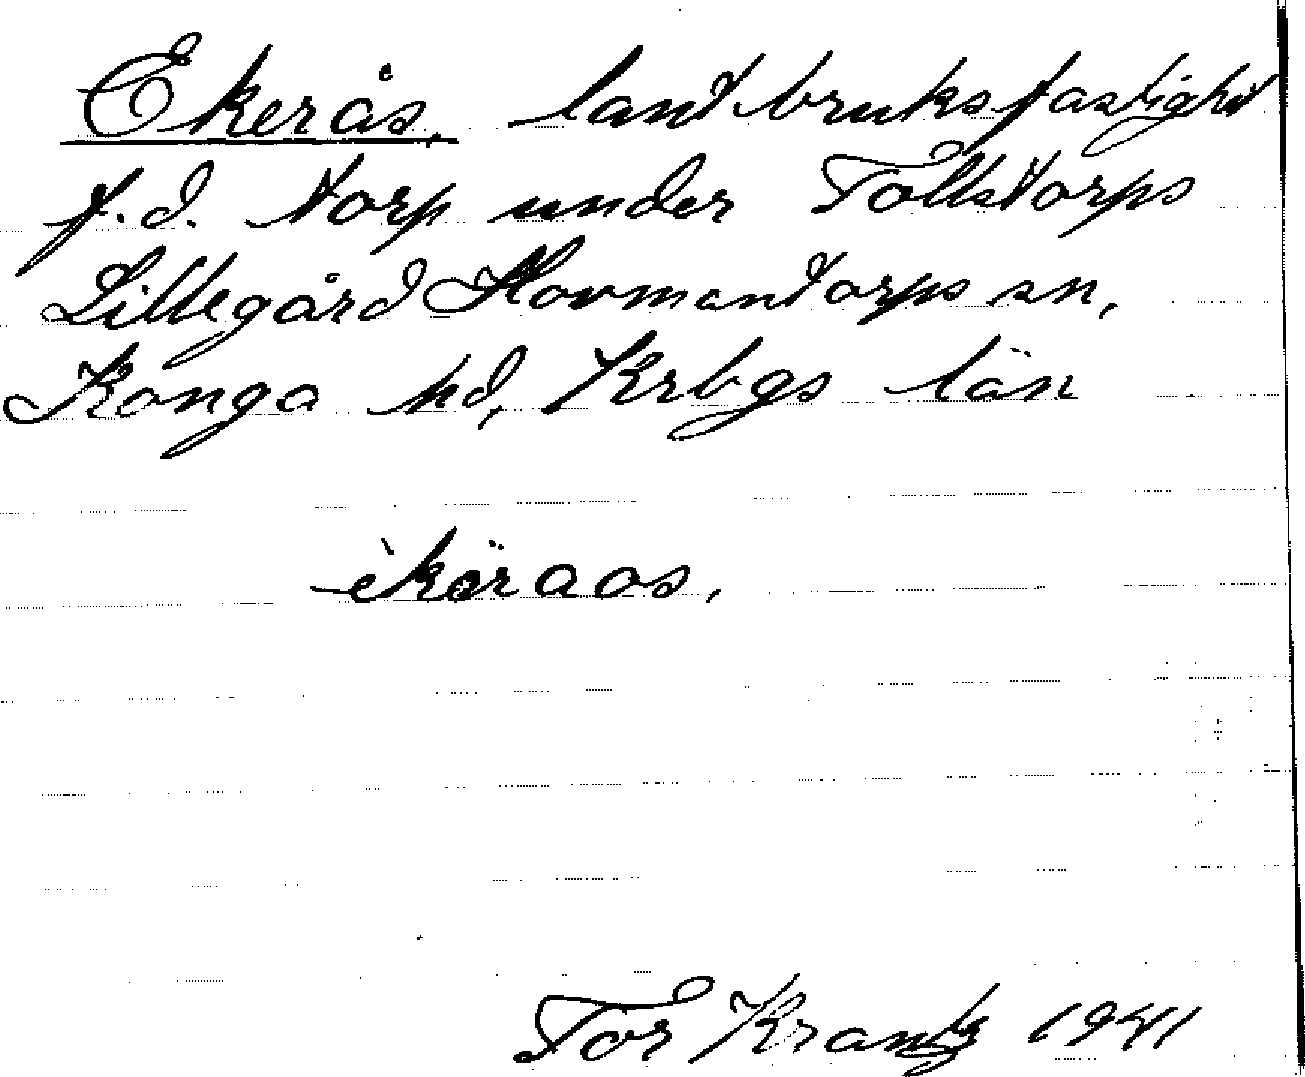 Ekerås, lantbruksfastighet
f.d. torp under Tollstorps
Lillegård Hovmantorps sn,
Konga hd, Krbgs län
èkäraos,
Tor Krantz 1941